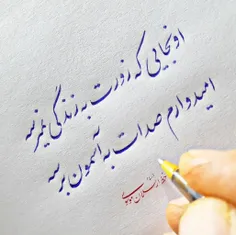 اونجایی که زورت به زندگی نمیرسه
امیدوارم صدات به آسمون برسه